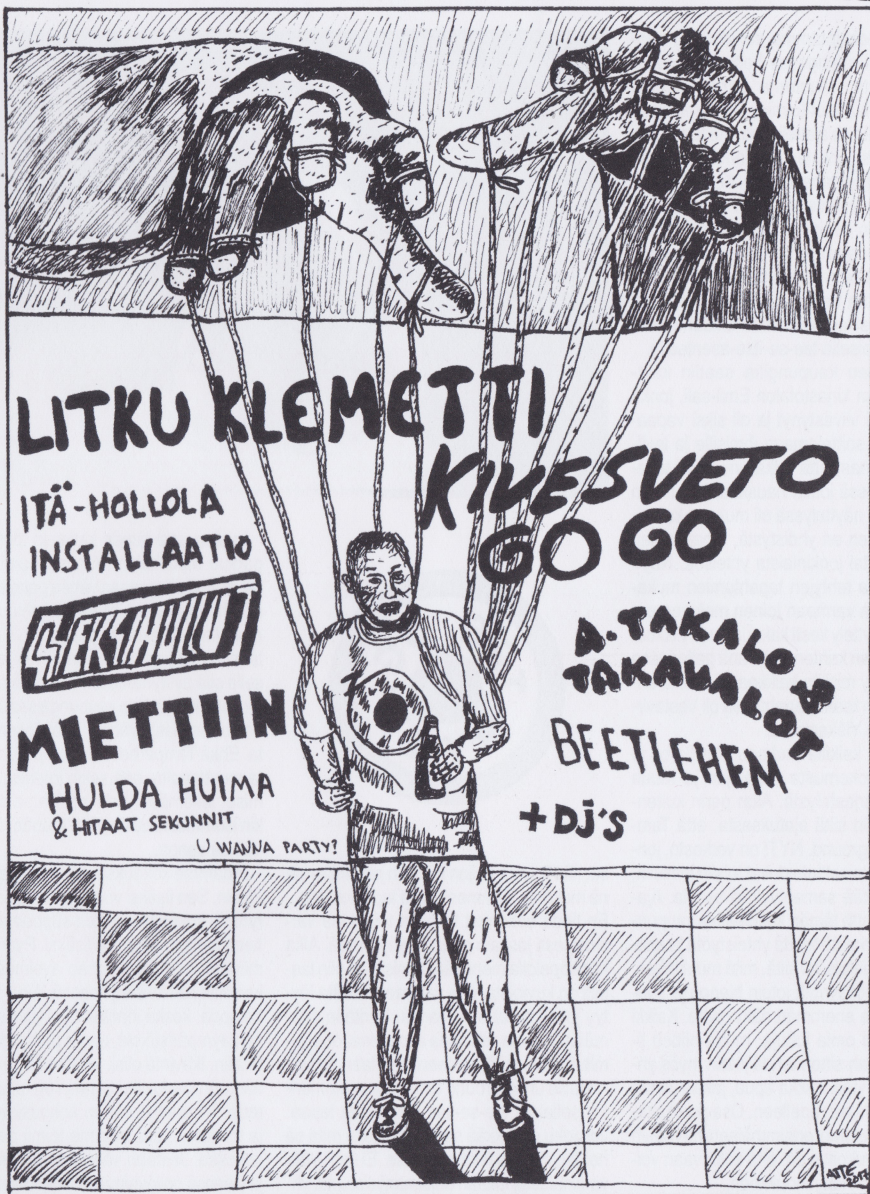 LITKU KLEMETTI
KIVESVETO
GO GO
ITÄ-HOLLOLA
INSTALLAATIO
SEKSIHULLUT
MIETTIIN
HULDA HUIMA
& HITAAT SEKUNNIT
U WANNA PARTY?
A. TAKALO &
TAKAVALOT
BEETLEHEM
+ DJ'S
ATTE
2017